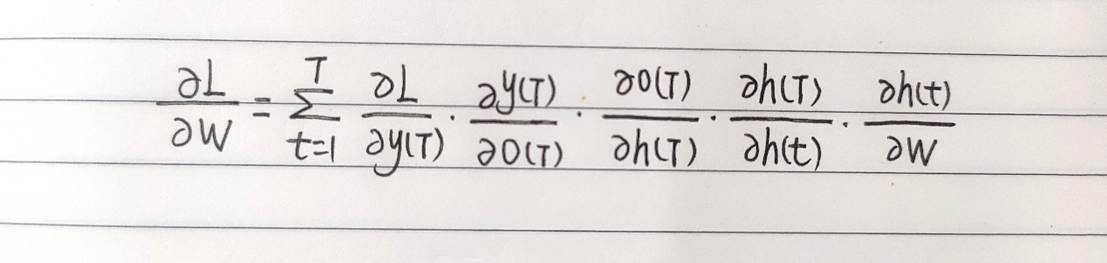 ∂L/∂W = Σ_{t=1}^{T} ∂L/∂y(T) · ∂y(T)/∂O(T) · ∂O(T)/∂h(T) · ∂h(T)/∂h(t) · ∂h(t)/∂W